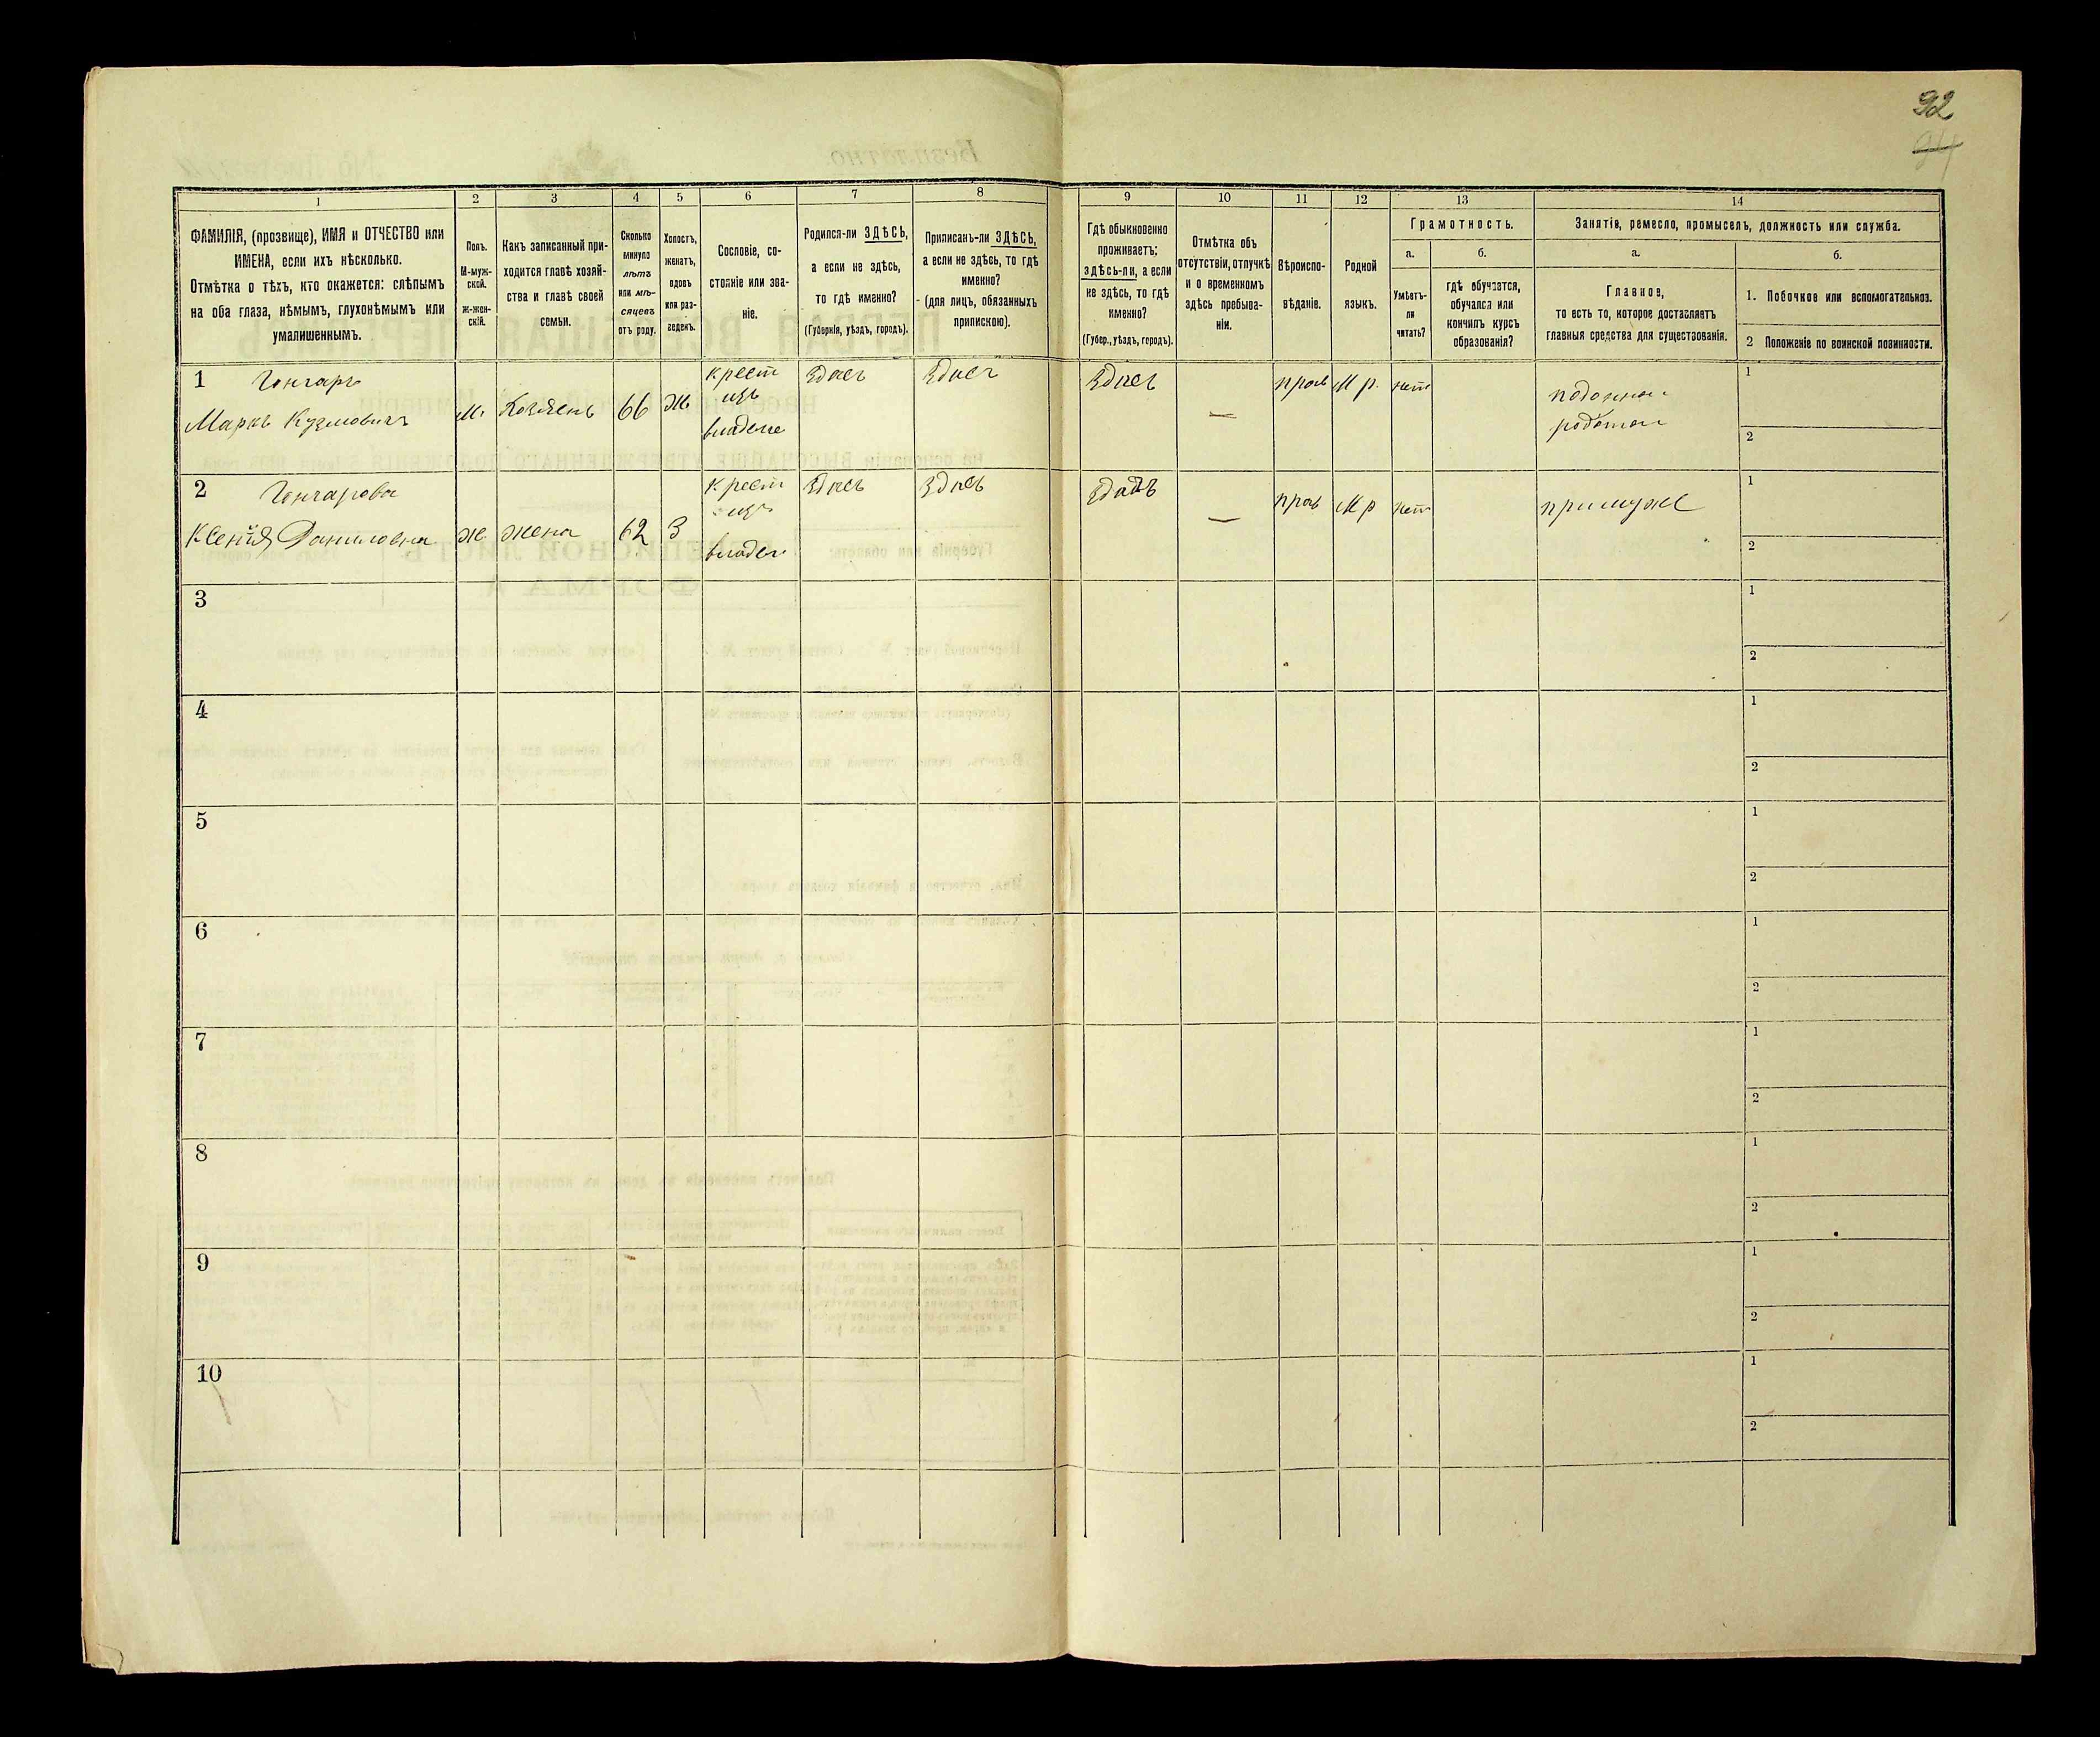 92
94
1
2
3
4
5
6
7
8
9
10
11
12
13
14
ФАМИЛІЯ, (прозвище), ИМЯ и ОТЧЕСТВО или
ИМЕНА, если ихъ нѣсколько.
Отмѣтка о тѣхъ, кто окажется: слѣпымъ
на оба глаза, нѣмымъ, глухонѣмымъ или
умалишеннымъ.
Полъ.
М-муж-
ской.
ж-жен-
скій.
Какъ записанный при-
ходится главѣ хозяй-
ства и главѣ своей
семьи.
Сколько
минуло
лѣтъ
или мѣ-
сяцевъ
отъ роду.
Холостъ,
женатъ,
вдовъ
или раз-
веденъ.
Сословіе, со-
стояніе или зва-
ніе.
Родился-ли ЗДѢСЬ,
а если не здѣсь,
то гдѣ именно?
(Губернія, уѣздъ, городъ).
Приписанъ-ли ЗДѢСЬ,
а если не здѣсь, то гдѣ
именно?
(для лицъ, обязанныхъ
припискою).
Гдѣ обыкновенно
проживаетъ:
здѣсь-ли, а если
не здѣсь, то гдѣ
именно?
(Губер., уѣздъ, городъ).
Отмѣтка объ
отсутствіи, отлучкѣ
и о временномъ
здѣсь пребыва-
ніи.
Вѣроиспо-
вѣданіе.
Родной
языкъ.
Грамотность.
а.
Умѣетъ-
ли
читать?
б.
гдѣ обучается,
обучался или
кончилъ курсъ
образованія?
Занятія, ремесло, промыселъ, должность или служба.
а.
Главное,
то есть то, которое доставляетъ
главныя средства для существованія.
б.
1. Побочное или вспомогательное.
2 Положеніе по воинской повинности.
1 Гончаръ
Маркъ Кузмовичъ
м. Хозяенъ 66 ж
крест
изъ
владеле
Здаєъ Здаєъ Здаєъ — прав М р. нет
1
2
2 Гончарова
Ксенія Даниловна
ж жена 62 З
крест
изъ
владел
Здаєъ Здаєъ — прав М р нет примуже
1
2
3
1
2
4
1
2
5
1
2
6
1
2
7
1
2
8
1
2
9
1
2
10
1
2